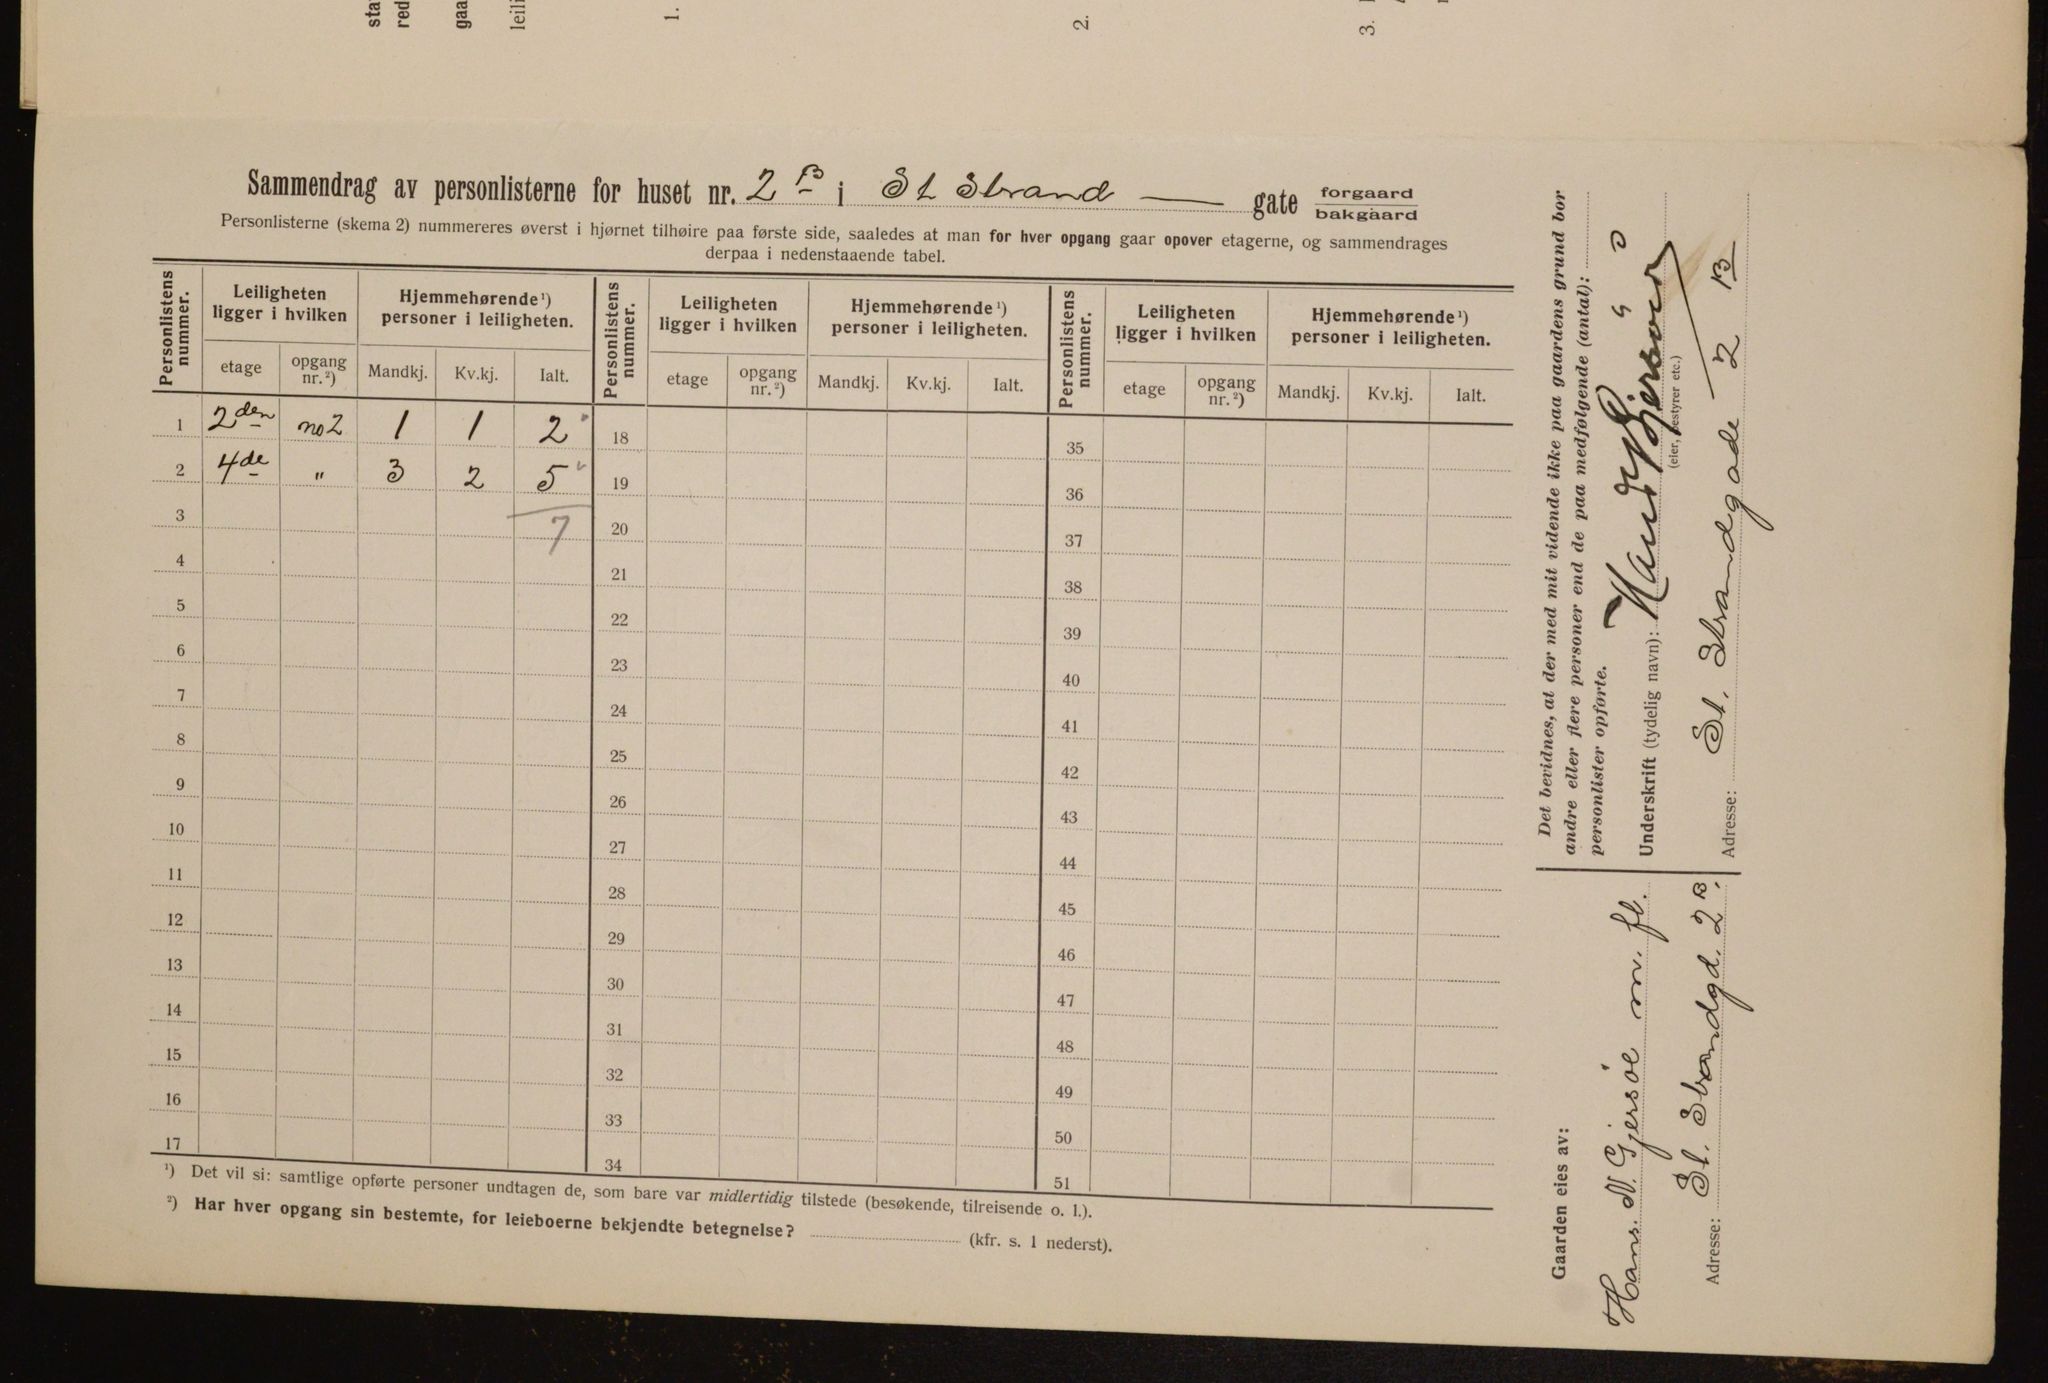 sta
red
gaa
leili
1.
2.
3.
Sammendrag av personlisterne for huset nr. 2 B i St Strand — gate forgaard
bakgaard
Personlisterne (skema 2) nummereres øverst i hjørnet tilhøire paa første side, saaledes at man for hver opgang gaar opover etagerne, og sammendrages
derpaa i nedenstaaende tabel.
Personlistens nummer. Leiligheten ligger i hvilken Hjemmehørende ¹) personer i leiligheten. Personlistens nummer. Leiligheten ligger i hvilken Hjemmehørende ¹) personer i leiligheten. Personlistens nummer. Leiligheten ligger i hvilken Hjemmehørende ¹) personer i leiligheten.
etage opgang nr. ²) Mandkj. Kv.kj. Ialt. etage opgang nr. ²) Mandkj. Kv.kj. Ialt. etage opgang nr. ²) Mandkj. Kv.kj. Ialt.
1 2den no 2 1 1 2 18 35
2 4de " 3 2 5 19 36
3 7 20 37
4 21 38
5 22 39
6 23 40
7 24 41
8 25 42
9 26 43
10 27 44
11 28 45
12 29 46
13 30 47
14 31 48
15 32 49
16 33 50
17 34 51
¹) Det vil si: samtlige opførte personer undtagen de, som bare var midlertidig tilstede (besøkende, tilreisende o. l.).
²) Har hver opgang sin bestemte, for leieboerne bekjendte betegnelse? (kfr. s. 1 nederst).
Det bevidnes, at der med mit vidende ikke paa gaardens grund bor
andre eller flere personer end de paa medfølgende (antal):
personlister opførte.
Underskrift (tydelig navn):
(eier, bestyrer etc.)
Adresse: St. Strandgade 2 B
Gaarden eies av:
Hans. N. Gjersöe m. fl.
Adresse: St. Strandgd. 2 B.